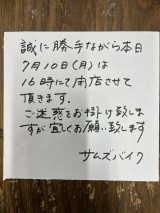 誠に勝手ながら本日
7月10日(月)は
16時にて閉店させて
頂きます。
ご迷惑をお掛け致しま
すが宜しくお願い致します
サムズバイク